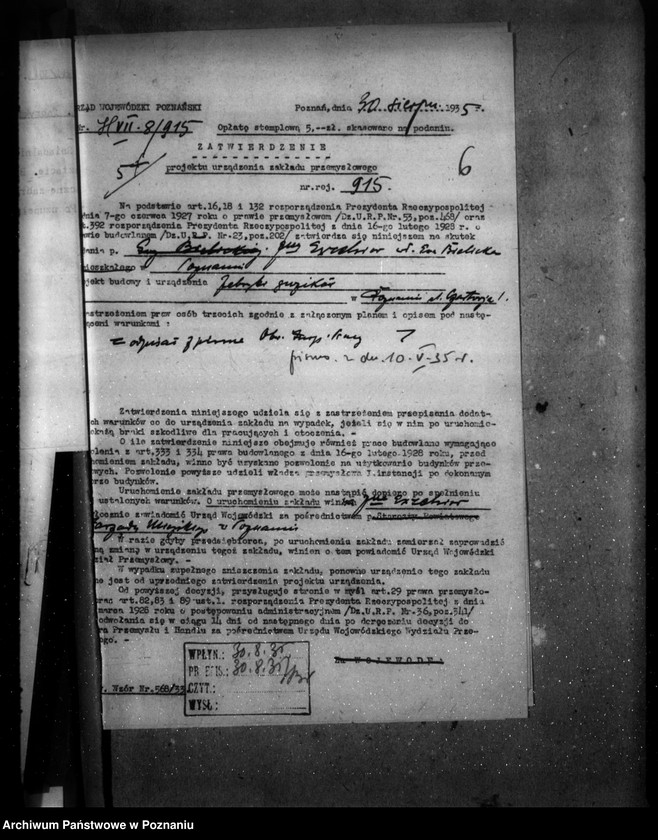 RZĄD WOJEWÓDZKI POZNAŃSKI
Poznań, dnia 30. sierpn. 1935 r.
Nr. H VII. 8/915
Opłatę stemplową 5,--zł. skasowano na podaniu.
ZATWIERDZENIE
projektu urządzenia zakładu przemysłowego
6
nr.rej. 915.
Na podstawie art.16,18 i 132 rozporządzenia Prezydenta Rzeczypospolitej
dnia 7-go czerwca 1927 roku o prawie przemysłowem /Dz.U.R.P.Nr.53,poz.468/ oraz
t.392 rozporządzenia Prezydenta Rzeczypospolitej z dnia 16-go lutego 1928 r. o
wie budowlanem /Dz.U.R.P. Nr.23,poz.202/ zatwierdza się niniejszem na skutek
dania p.
mieszkałego w Poznaniu
jekt budowy i urządzenia Fabryki guzików
w Poznaniu
astrzeżeniem praw osób trzecich zgodnie z załączonym planem i opisem pod nastę-
ącemi warunkami :
pismo z dn. 10.V.35 r.
Zatwierdzenia niniejszego udziela się z zastrzeżeniem przepisania dodat-
ch warunków co do urządzenia zakładu na wypadek, jeżeli się w nim po uruchomie-
okażą braki szkodliwe dla pracujących i otoczenia. -
O ile zatwierdzenie niniejsze obejmuje również prace budowlane wymagające
olenia z art.333 i 334 prawa budowlanego z dnia 16-go lutego 1928 roku, przed
homieniem zakładu, winno być uzyskane pozwolenie na użytkowanie budynków prze-
wych. Pozwolenie powyższe udzieli władza przemysłowa I.instancji po dokonanym
orze budynków.
Uruchomienie zakładu przemysłowego może nastąpić dopiero po spełnieniu
ustalonych warunków. O uruchomieniu zakładu winien
ocześnie zawiadomić Urząd Wojewódzki za pośrednictwem p.Starosty Powiatowego
Zarządu Miejskiego w Poznaniu
W razie gdyby przedsiębiorca, po uruchomieniu zakładu zamierzał zaprowadzić
ną zmianę w urządzeniu tegoż zakładu, winien o tem powiadomić Urząd Wojewódzki
ział Przemysłowy. -
W wypadku zupełnego zniszczenia zakładu, ponowne urządzenie tego zakładu
ne jest od uprzedniego zatwierdzenia projektu urządzenia.
Od powyższej decyzji, przysługuje stronie w myśl art.29 prawa przemysło-
oraz art.82,83 i 89 ust.1. rozporządzenia Prezydenta Rzeczypospolitej z dnia
marca 1928 roku o postępowaniu administracyjnem /Dz.U.R.P. Nr.36,poz.341/
odwołania się w ciągu 14 dni od następnego dnia po doręczeniu decyzji do
ra Przemysłu i Handlu za pośrednictwem Urzędu Wojewódzkiego Wydziału Prze-
ego. -
WPŁYN.: 30.8.35
PRZEPIS.: 30.8.35
CZYT.:
WYSŁ.:
ZA WOJEWODĘ:
. Wzór Nr.568/33.
Archiwum Państwowe w Poznaniu